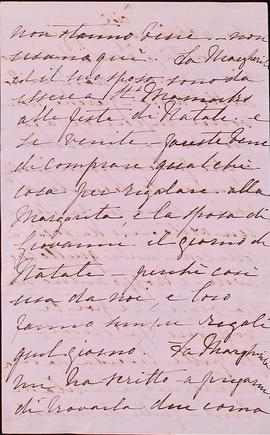 non stanno bene – non
usano qui. La Margherita
ed il suo sposo sono da
essere a
alle feste di Natale e
se venite – fareste bene
di comprare qualche
cosa per regalare alla
Margarita, e la sposa di
Giovanni il giorno di
Natale – perchè così
usa da noi, e loro
fanno sempre regali
quel giorno. La Margherita
mi ha scritto a
di trovarla due